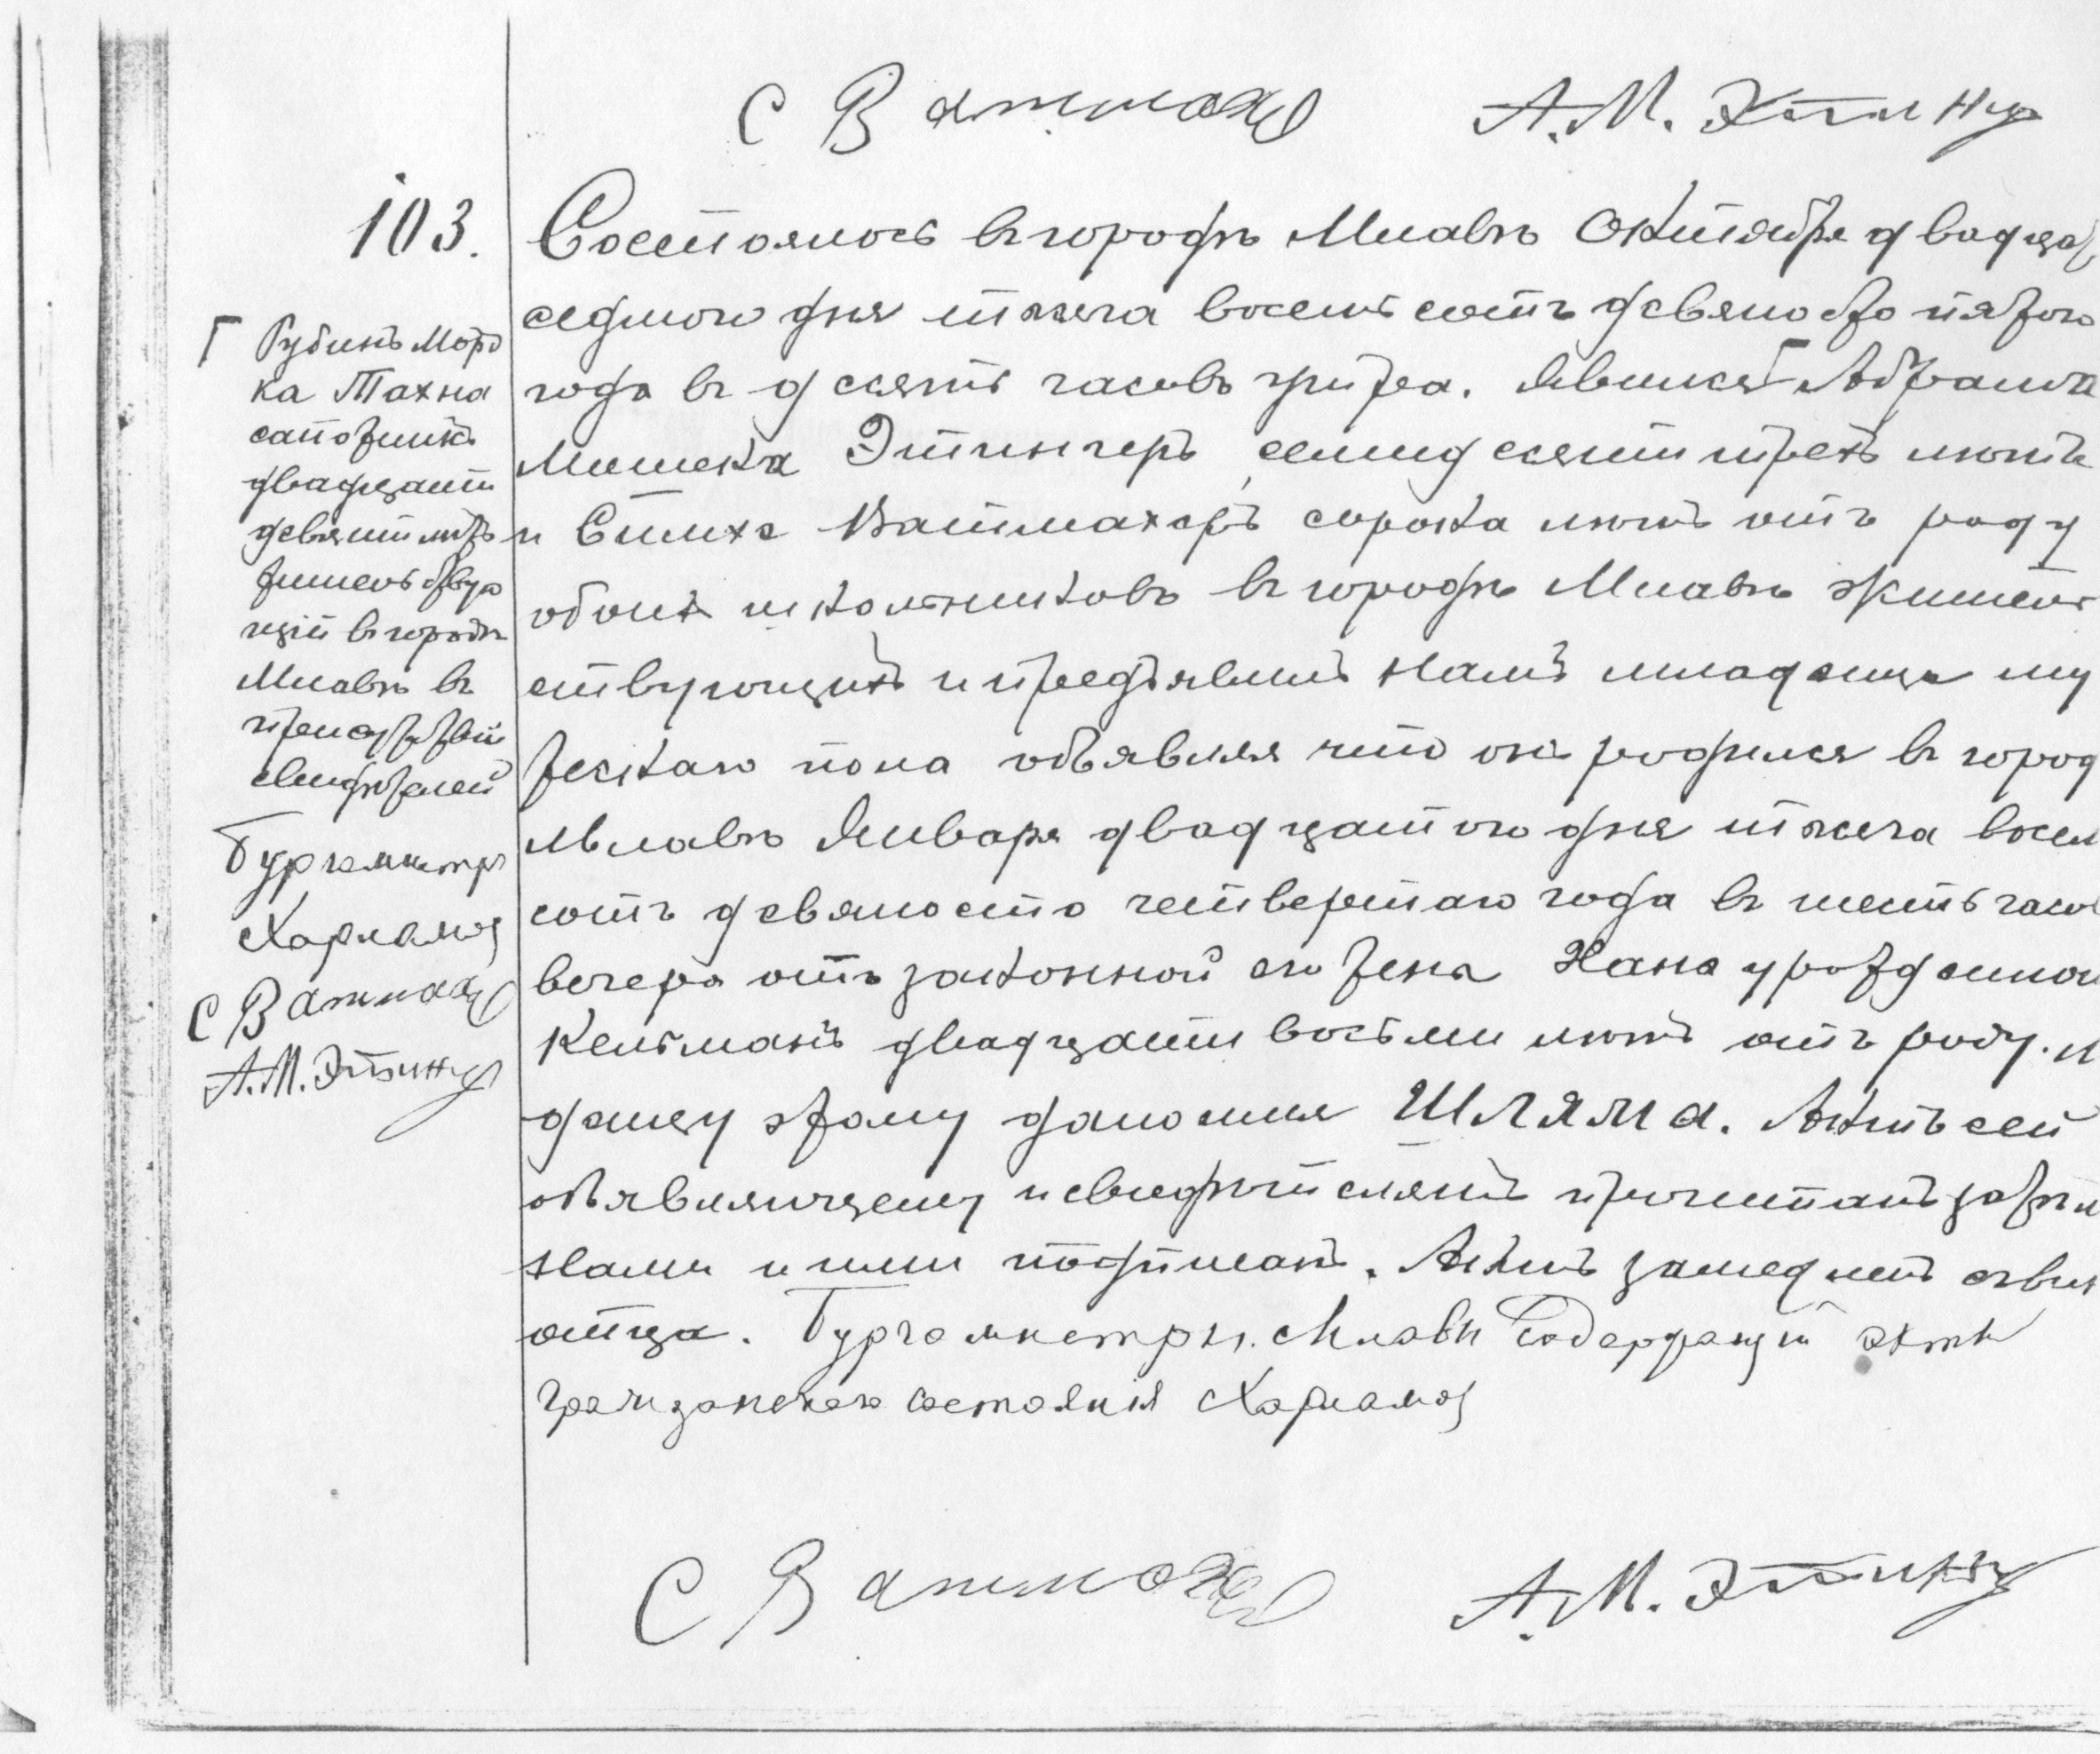 С Ватмахе А.М. Этингер
103.
Состоялось въ городѣ Млавѣ Октября двадца
седмого дня тысяча восемьсотъ девяносто пятого
года въ десять часовъ утра. Явился Абрамъ
Мошека Этингеръ, семидесяти трехъ лѣтъ
и Симха Ватмахеръ сорока лѣтъ отъ роду
обоихъ школьниковъ въ городѣ Млавѣ жительс
ствующихъ и предъявилъ намъ младенца му
жескаго пола объявляя что онъ родился въ город
Млавѣ Января двадцатого дня тысяча восем
сотъ девяносто четвертаго года въ шесть часов
вечера отъ законной его жены Хана урожденной
Кельманъ двадцати восьми лѣтъ отъ роду. и
данцу этому дано имя Шляма. Актъ сей
объявляющему и свидѣтелямъ прочитанъ затѣм
Нами и ими подписанъ. Актъ замедленъ
отца. Бургомистръ г. Млавы Содержащій акты
гражданскаго состоянія Харламов
Г Рубинъ Морд
ка Тахна
сапожникъ
двадцати
девяти лѣтъ
жительствую
щій въ городѣ
Млавѣ въ
присутствіи
свидѣтелей
Бургомистръ
Харламов
С Ватмахе
А.М. Этингер
С Ватмахе А.М. Этингер